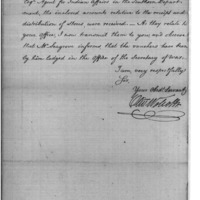 Esqr Agent for Indian Affairs in the Southern Depart-
ment, the enclosed accounts relative to the receipt and
distribution of stores were received. — As they relate to
your Office, I now transmit them to you and observe
that Mr. Seagrove informs that the vouchers have been
by him lodged in the Office of the Secretary of War.
I am, very respectfully
Sir,
Your Obedt. Servant,
Oliv Wolcott